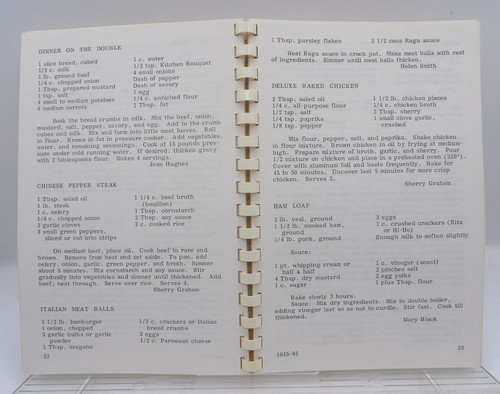 DINNER ON THE DOUBLE
1 slice bread, cubed
1/3 c. milk
1 lb. ground beef
1/4 c. chopped onion
1 Tbsp. prepared mustard
1 tsp. salt
4 small to medium potatoes
4 medium carrots
1 c. water
1/2 tsp. Kitchen Bouquet
4 small onions
Dash of pepper
Dash of savory
1 egg
1/4 c. enriched flour
2 Tbsp. fat
Soak the bread crumbs in milk. Mix the beef, onion,
mustard, salt, pepper, savory, and egg. Add to the crumb
cubes and milk. Mix and form into little meat loaves. Roll
in flour. Brown in fat in pressure cooker. Add vegetables,
water, and remaining seasonings. Cook at 15 pounds pres-
sure under cold running water. If desired, thicken gravy
with 2 tablespoons flour. Makes 4 servings.
Jean Hughes
CHINESE PEPPER STEAK
1 Tbsp. salad oil
1 lb. steak
1 c. celery
1/4 c. chopped onion
2 garlic cloves
3 small green peppers,
sliced or cut into strips
1/4 c. beef broth
(bouillon)
1 Tbsp. cornstarch
2 Tbsp. soy sauce
2 c. cooked rice
On medium heat, place oil. Cook beef to rare and
brown. Remove from heat and set aside. To pan, add
celery, onion, garlic, green pepper, and broth. Simmer
about 5 minutes. Mix cornstarch and soy sauce. Stir
gradually into vegetables and simmer until thickened. Add
beef; heat through. Serve over rice. Serves 4.
Sherry Graham
ITALIAN MEAT BALLS
2 1/2 lb. hamburger
1 onion, chopped
3 garlic bulbs or garlic
powder
1 Tbsp. oregano
1/2 c. crackers or Italian
bread crumbs
3 eggs
1/2 c. Parmesan cheese
32
1 Tbsp. parsley flakes
2 1/2 cans Ragu sauce
Heat Ragu sauce in crock pot. Make meat balls with rest
of ingredients. Simmer until meat balls thicken.
Helen Smith
DELUXE BAKED CHICKEN
2 Tbsp. salad oil
1/4 c. all-purpose flour
1/2 tsp. salt
1/4 tsp. paprika
1/8 tsp. pepper
1 1/2 lb. chicken pieces
1/4 c. chicken broth
2 Tbsp. sherry
1 small clove garlic,
crushed
Mix flour, pepper, salt, and paprika. Shake chicken
in flour mixture. Brown chicken in oil by frying at medium-
high. Prepare mixture of broth, garlic, and sherry. Pour
1/2 mixture on chicken and place in a preheated oven (350°).
Cover with aluminum foil and baste frequently. Bake for
45 to 50 minutes. Uncover last 5 minutes for more crisp
chicken. Serves 2.
Sherry Graham
HAM LOAF
2 lb. veal, ground
1 1/2 lb. smoked ham,
ground
1/4 lb. pork, ground
2 eggs
1 c. crushed crackers (Ritz
or Hi-Ho)
Enough milk to soften slightly
Sauce:
1 pt. whipping cream or
half & half
4 Tbsp. dry mustard
1 c. sugar
1 c. vinegar (scant)
2 pinches salt
2 egg yolks
1 plus Tbsp. flour
Bake slowly 3 hours.
Sauce: Mix dry ingredients. Mix in double boiler,
adding vinegar last so as not to curdle. Stir fast. Cook till
thickened.
Mary Black
1045-81
33